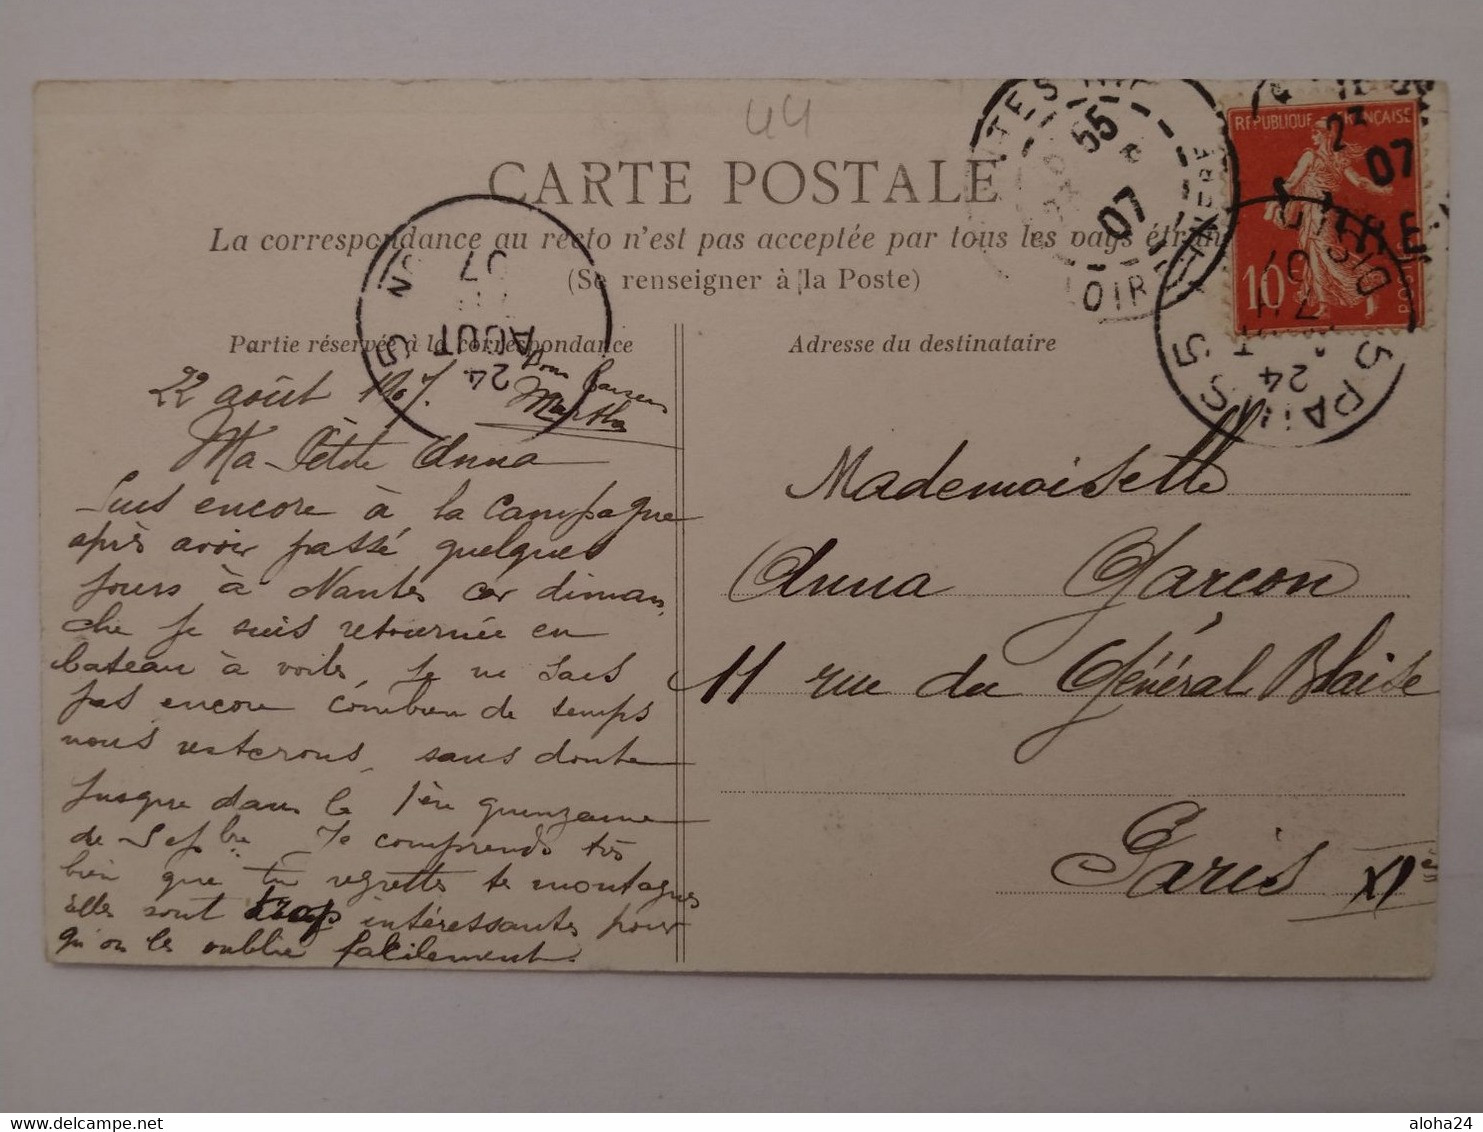 44
CARTE POSTALE
La correspondance au recto n'est pas acceptée par tous les pays étran
(Se renseigner à la Poste)
Partie réservée à la correspondance
Adresse du destinataire
22 août 1907.
Bons baisers
Martha
Ma Petite Anna
Suis encore à la campagne
après avoir passé quelques
jours à Nantes car diman
che je suis retournée en
bateau à voile, je ne sais
pas encore combien de temps
nous resterons, sans doute
jusque dans la 1ère quinzaine
de Sepbre. Je comprends très
bien que tu regrettes tes montagnes
elles sont trop intéressantes pour
qu'on les oublie facilement.
Mademoiselle
Anna Garçon
11 rue du Général Blaise
Paris XI
REPUBLIQUE FRANÇAISE
10
POSTES
55
07
LOIRE
23
07
24
AOUT
07
PARIS
24
07
aloha24